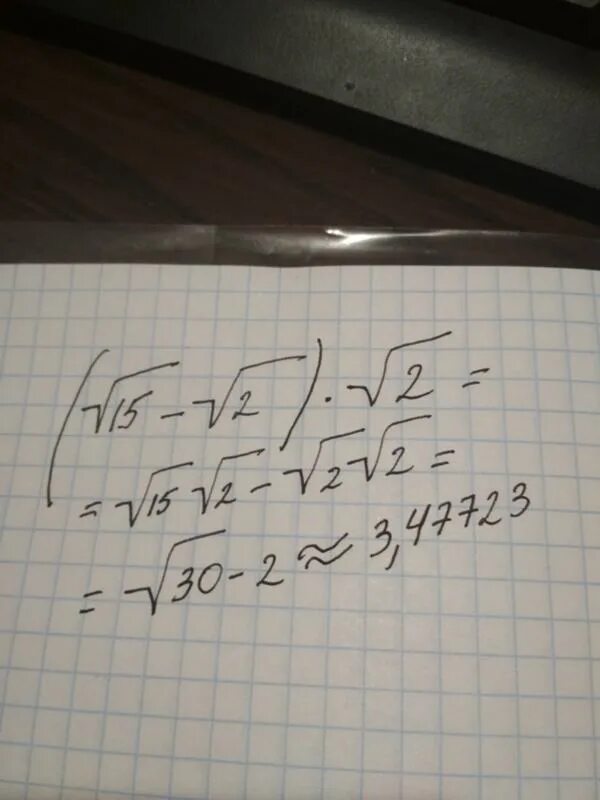 (√15 - √2) · √2 =
= √15 √2 - √2 √2 =
= √30 - 2 ≈ 3,47723